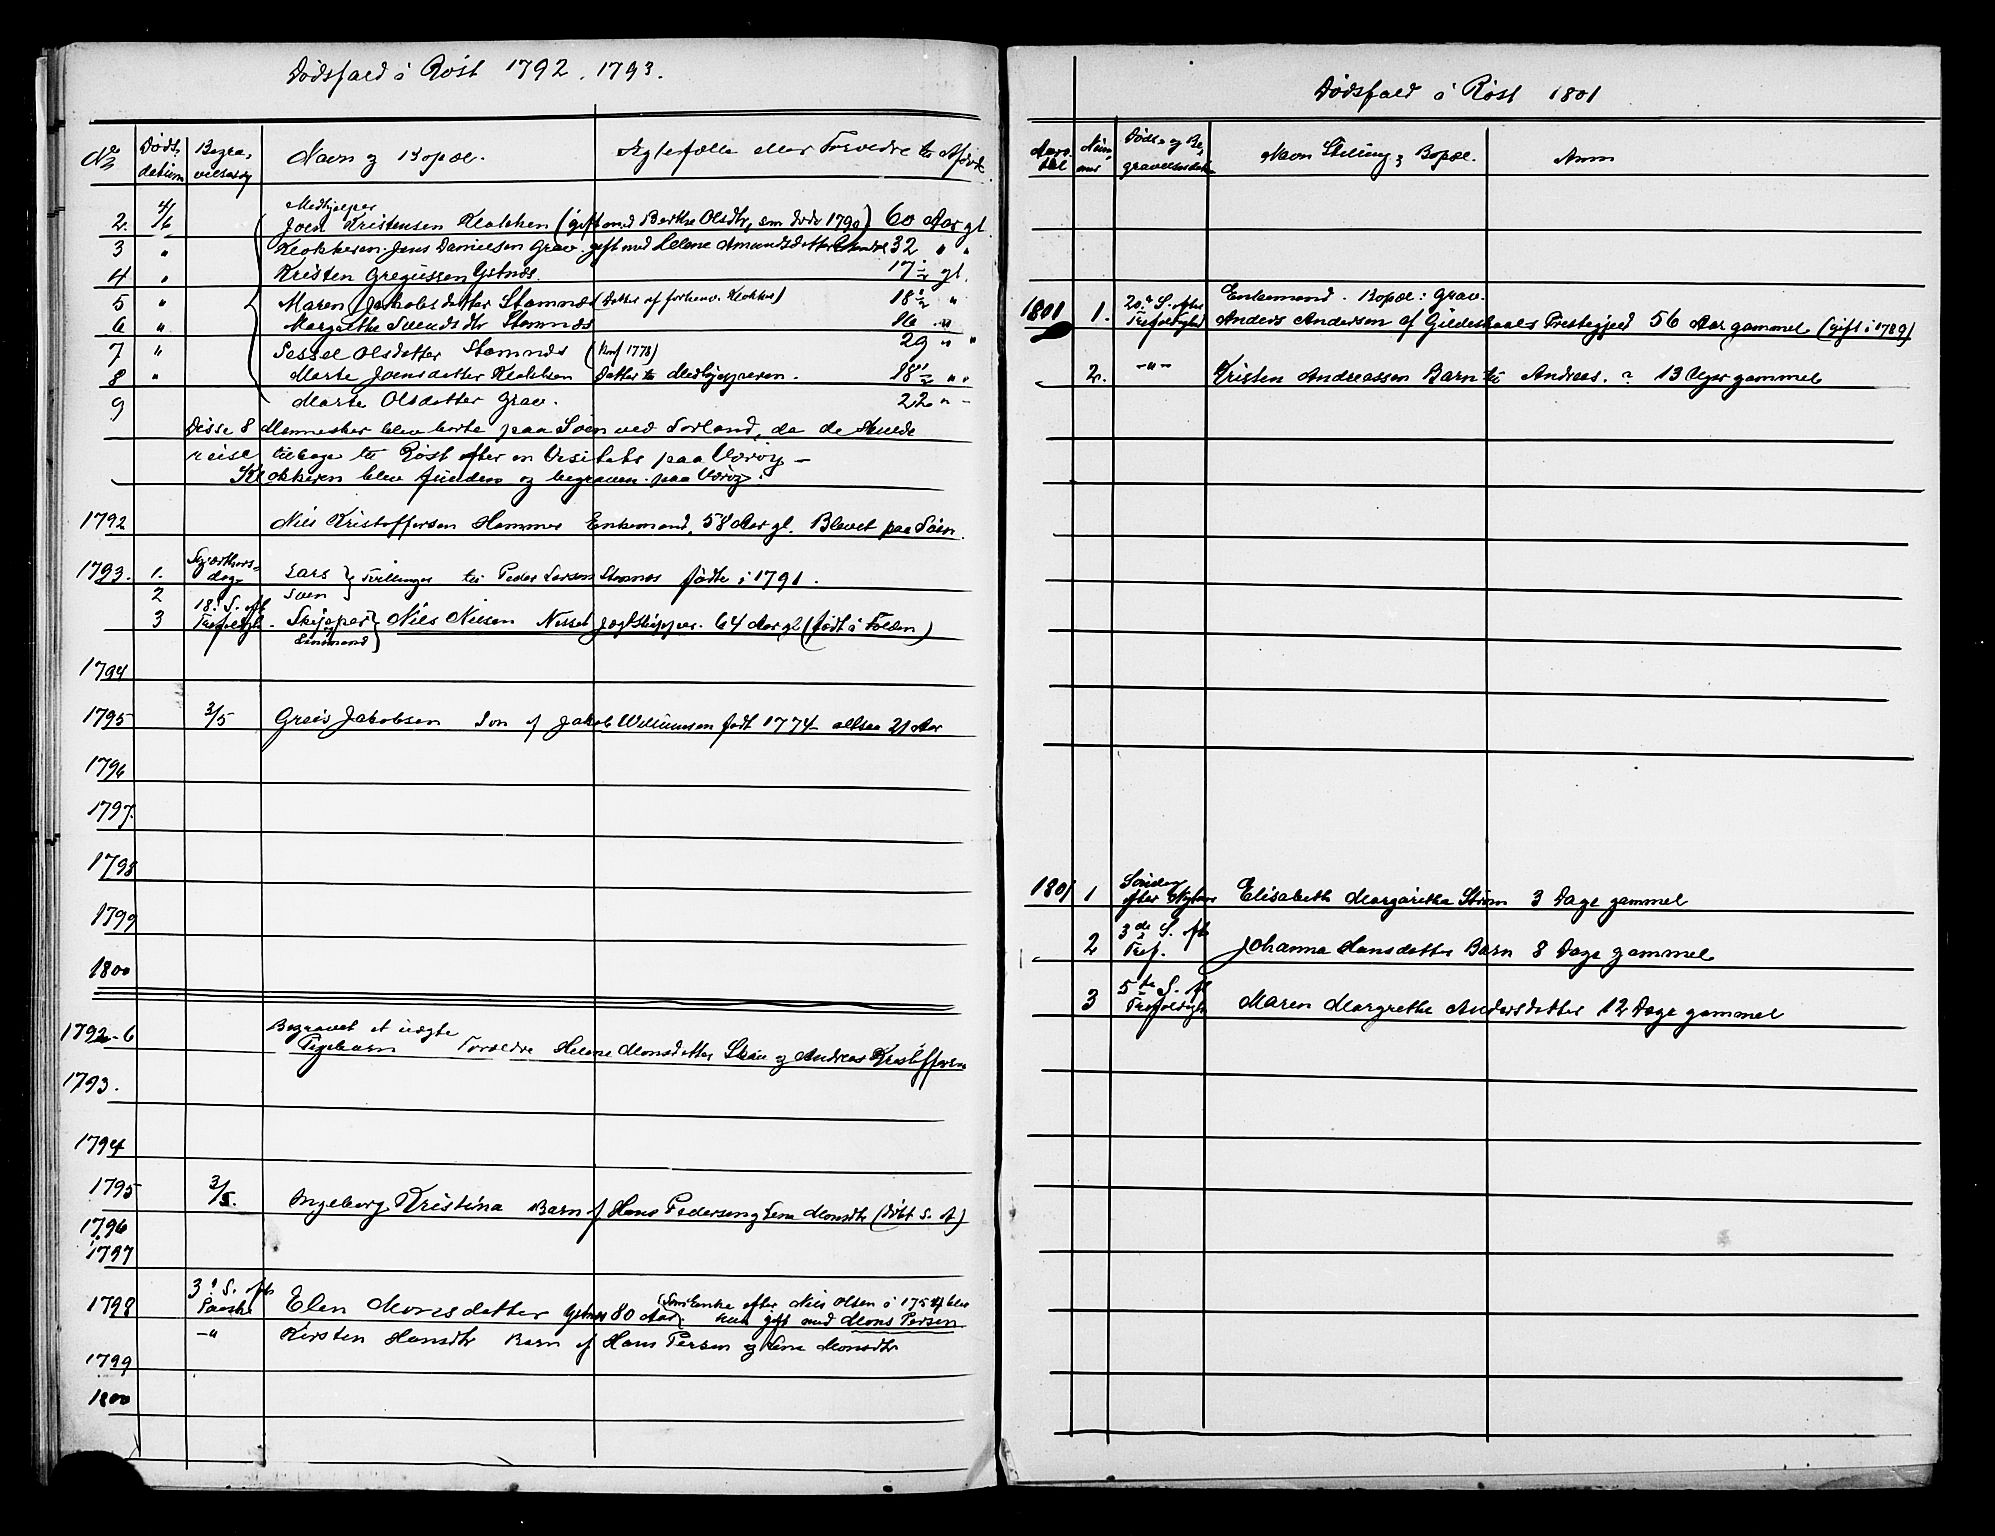 Dødsfald i Røst 1792. 1793.
No Døds datum Begravelsesdag Navn og Bopæl. Ægtefælle eller Forældre til Afdøde
Medhjelper
2. 4/6 Joen Kristensen Klakken (gift med Berthe Olsdtr, som døde 1790) 60 Aar gl.
3 " Klokkeren Jens Danielsen Grav gift med Helene Amundsdatter 32 " "
4 " Kristen Gregussen Ystnæs. 17 1/2 gl.
5 " Maren Jakobsdatter Stamnæs (Datter af forhenv. Klokker) 18 1/2 "
6 " Margrethe Svendsdtr Stamnæs 16 "
7 " Sessel Olsdatter Stamnæs (Konf 1778) 29 " "
8 " Marte Joensdatter Klakken Datter til Medhjelperen. 18 1/2 " "
9 Marte Olsdatter Grav. 22 " -
Disse 8 Mennesker blev borte paa Søen ved Sorland, da de skulde
reise tilbage til Røst efter en Visitats paa Værøy -
Klokkeren blev funden og begraven paa Værøy.
1792 Nils Kristoffersen Hammer Enkemand, 58 Aar gl. Blevet paa Søen.
1793. 1. dag Lars } Tvillinger til Peder Larsen Stamnæs fødte i 1791.
2 Soen
3 18. S. eft Trefoldigh. Skipper Enkemand } Niels Nielsen Nesset Jagtskipper. 64 Aar gl (født i Folden)
1794
1795 3/5 Greis Jakobsen Søn af Jakob Willumsen født 1774 altsaa 21 Aar
1796
1797.
1798
1799
1800
1792-6 Begravet et uægte
Pigebarn Forældre Helene Monsdatter og Andreas Kristoffersen
1793.
1794
1795 3/5. Ingeborg Kristina Barn af Hans Pedersen og Lena Monsdtr (døbt S. af)
1796
1797
1798 3. S. eft Paaske Elen Monsdatter Ystnæs 80 Aar. (Som Enke efter Niels Olsen i 1754 blev
hun gift med Mons Persen
-" Kirsten Hansdtr Barn af Hans Persen og Lena Monsdtr
1799
1800
Dødsfald i Røst 1801
Aarstal Nummer Døds- og Begravelsesdato Navn Stilling og Bopæl. Anm
Enkemand. Bopæl: Grav.
1801 1. 20. S. efter Trefoldighd Anders Andersen af Gildeskaals Prestegjeld 56 Aar gammel (gift i 1789)
2. -"- Kristen Andreassen Barn til Andreas. ? 13 Uger gammel
1801 1 Søndag efter Nytaar Elisabeth Margaretha Strøm 3 Dage gammel
2 3de S. eft Tref. Johanna Hansdatter Barn 8 Dage gammel
3 5te S. ef Trefoldigh Maren Margrethe Andersdatter 12 Dage gammel